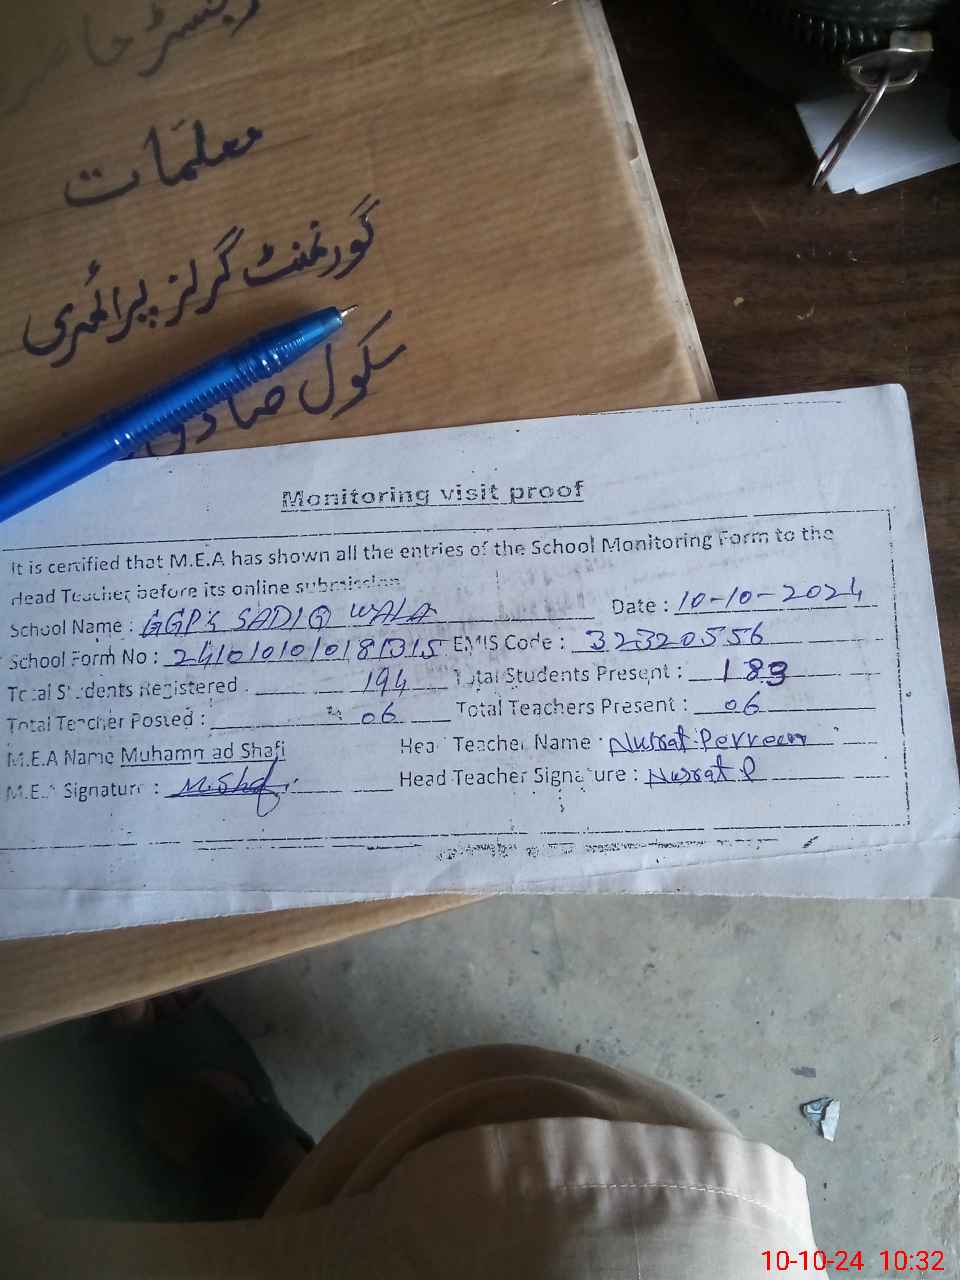 رجسٹر حاضری
معلمات
گورنمنٹ گرلز پرائمری
سکول صادق
Monitoring visit proof
It is certified that M.E.A has shown all the entries of the School Monitoring Form to the
Head Teacher before its online submission
School Name : GGPS SADIQ WALA Date : 10-10-2024
School Form No : EMIS Code : 32320556
Total Students Registered : 194 Total Students Present : 183
Total Teacher Posted : 06 Total Teachers Present : 06
M.E.A Name Muhammad Shafi Head Teacher Name : Nusrat Perveen
M.E.A Signature : M.Shafi Head Teacher Signature : Nusrat P
10-10-24 10:32